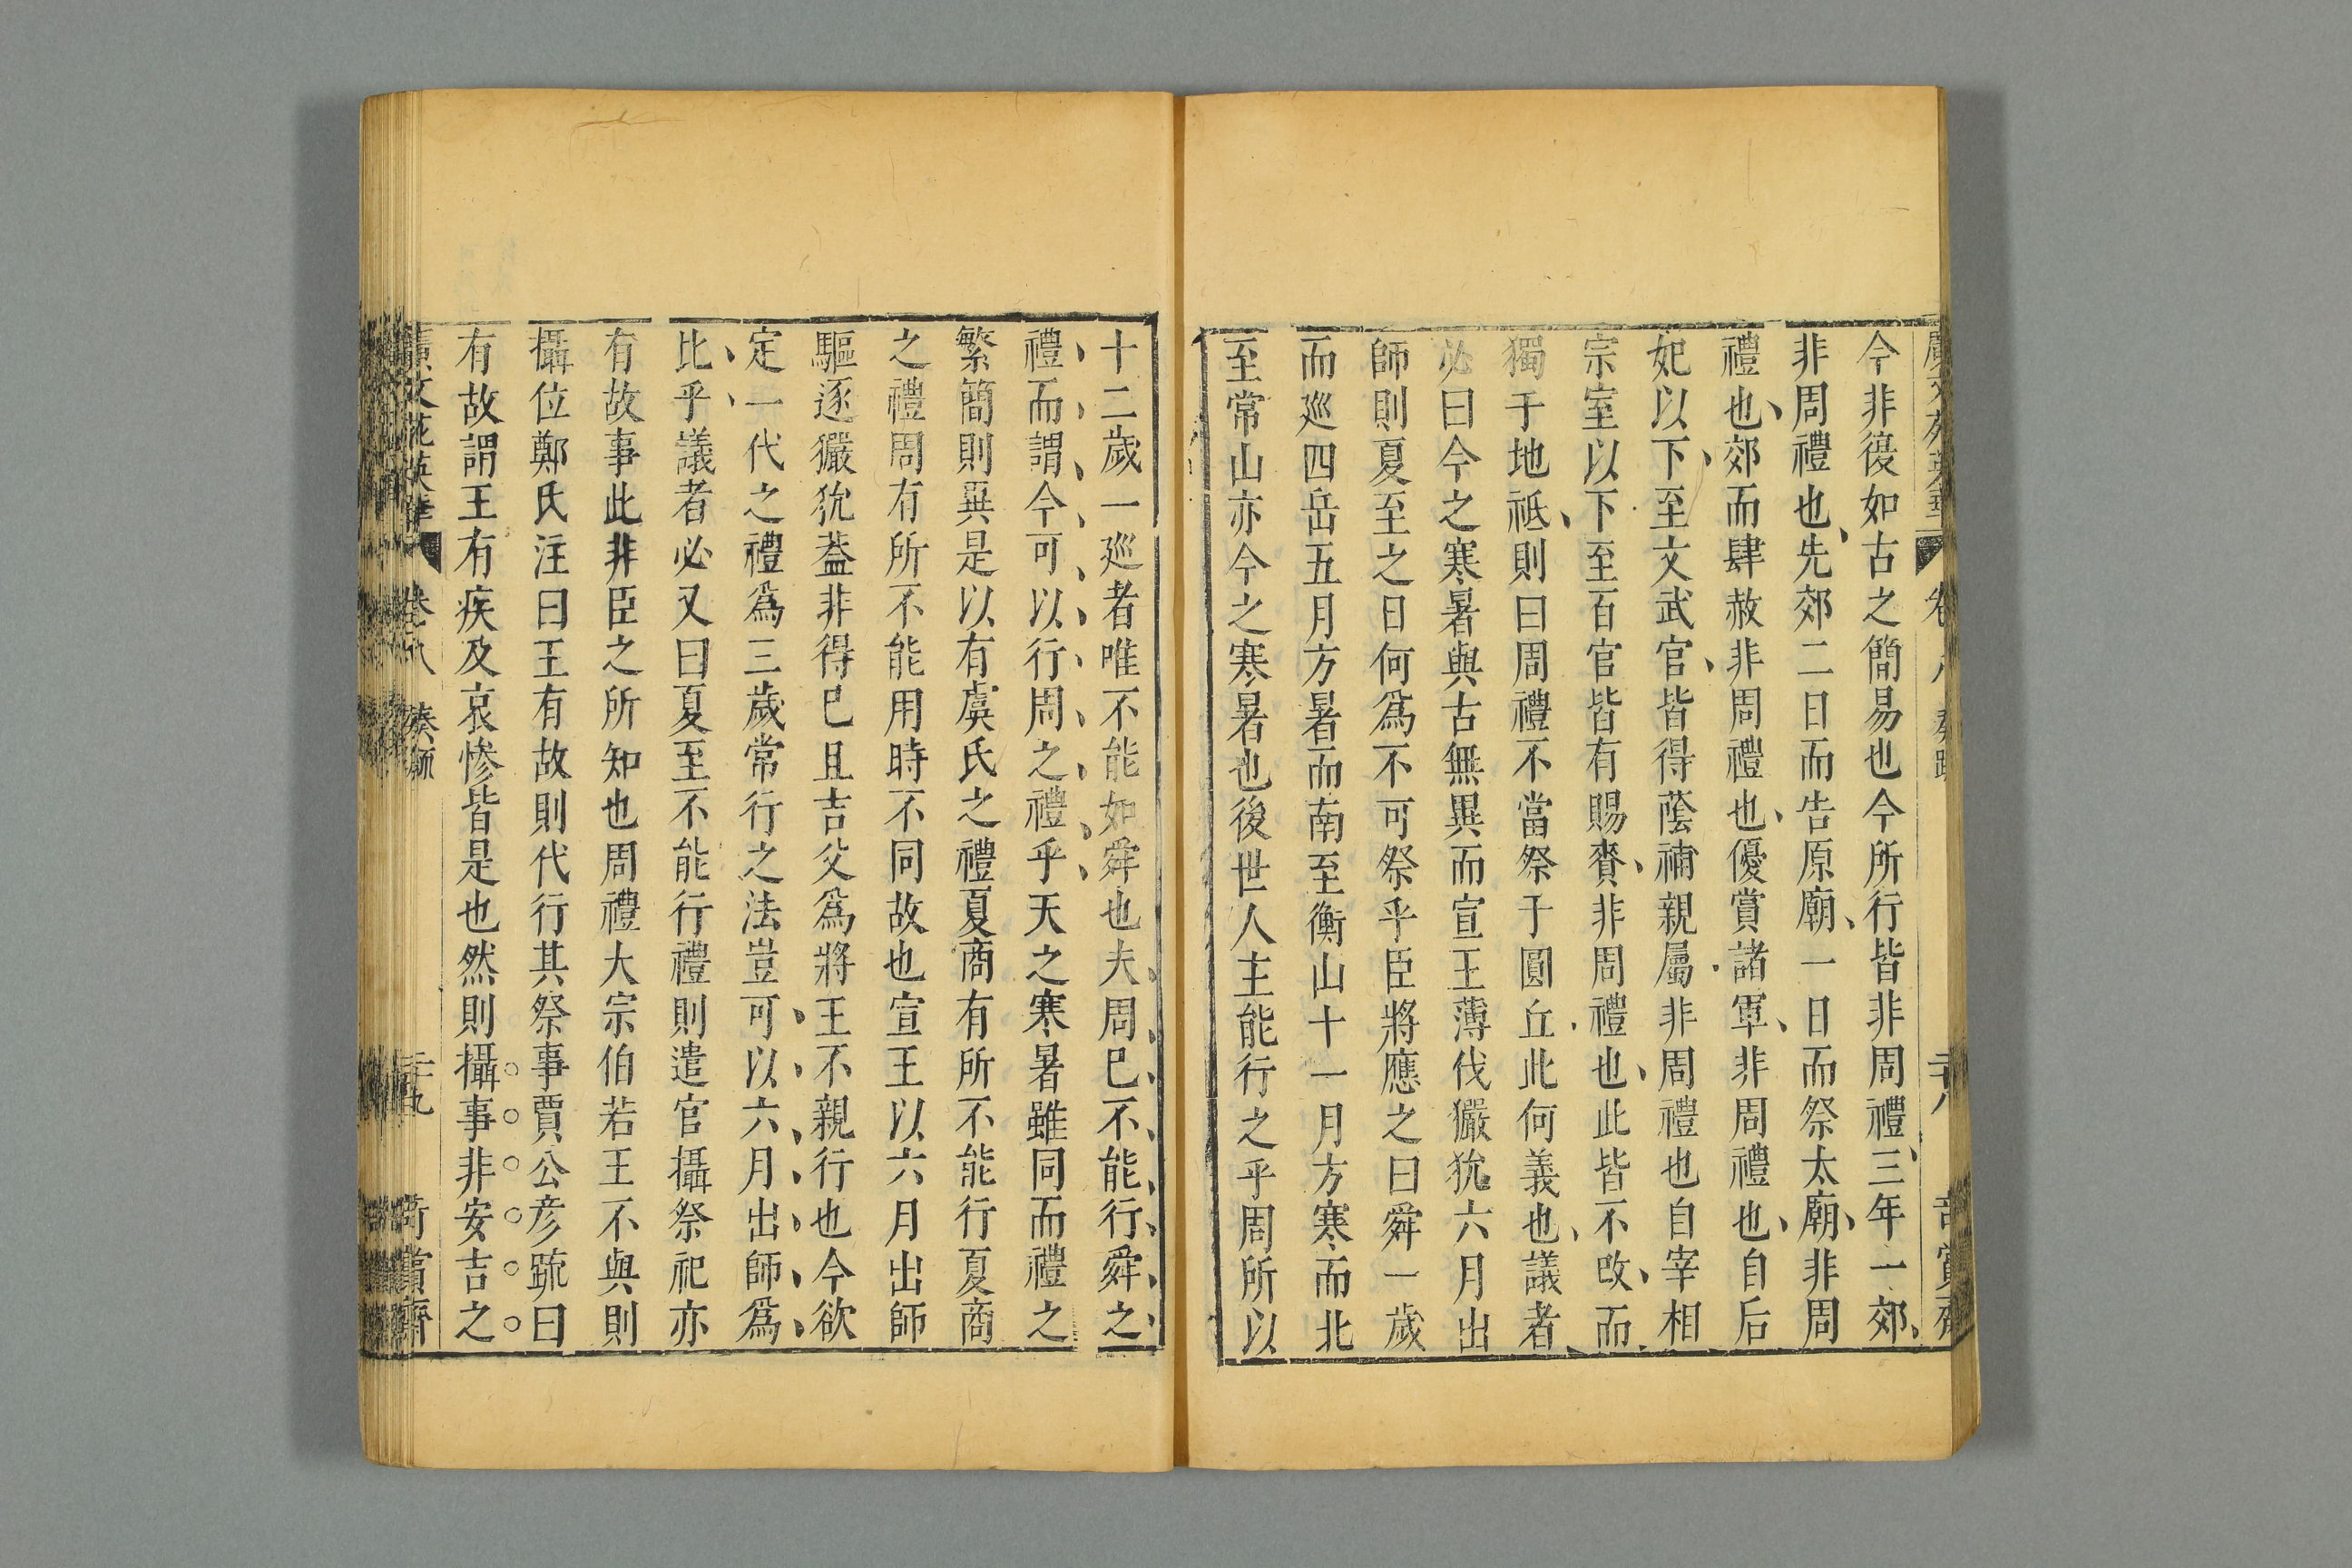 廣文苑英華 卷八 奏疏 二十八 賞齋
今非復如古之簡易也今所行皆非周禮三年一郊
非周禮也先郊二日而告原廟一日而祭太廟非周
禮也郊而肆赦非周禮也優賞諸軍非周禮也自后
妃以下至文武官皆得蔭補親屬非周禮也自宰相
宗室以下至百官皆有賜賚非周禮也此皆不改而
獨于地祗則曰周禮不當祭于圓丘此何義也議者
必曰今之寒暑與古無異而宣王薄伐玁狁六月出
師則夏至之日何爲不可祭乎臣將應之曰舜一歲
而巡四岳五月方暑而南至衡山十一月方寒而北
至常山亦今之寒暑也後世人主能行之乎周所以
十二歲一巡者唯不能如舜也夫周巳不能行舜之
禮而謂今可以行周之禮乎天之寒暑雖同而禮之
繁簡則異是以有虞氏之禮夏商有所不能行夏商
之禮周有所不能用時不同故也宣王以六月出師
驅逐玁狁葢非得巳且吉父爲將王不親行也今欲
定一代之禮爲三歲常行之法豈可以六月出師爲
比乎議者必又曰夏至不能行禮則遣官攝祭祀亦
有故事此非臣之所知也周禮大宗伯若王不與則
攝位鄭氏注曰王有故則代行其祭事賈公彦疏曰
有故謂王有疾及哀慘皆是也然則攝事非安吉之
廣文苑英華 卷八 奏疏 二十九 奇賞齋